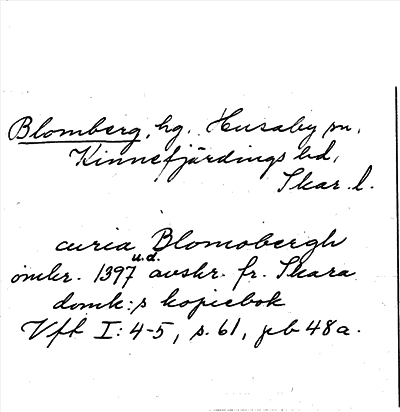 Blomberg, hg. Husaby sn,
Kinnefjärdings hd,
Skar. l.
curia Blomobergh
omkr. 1397 u.d. avskr. fr. Skara
domk:s kopiebok
Vff I: 4-5, s. 61, pb 48a.